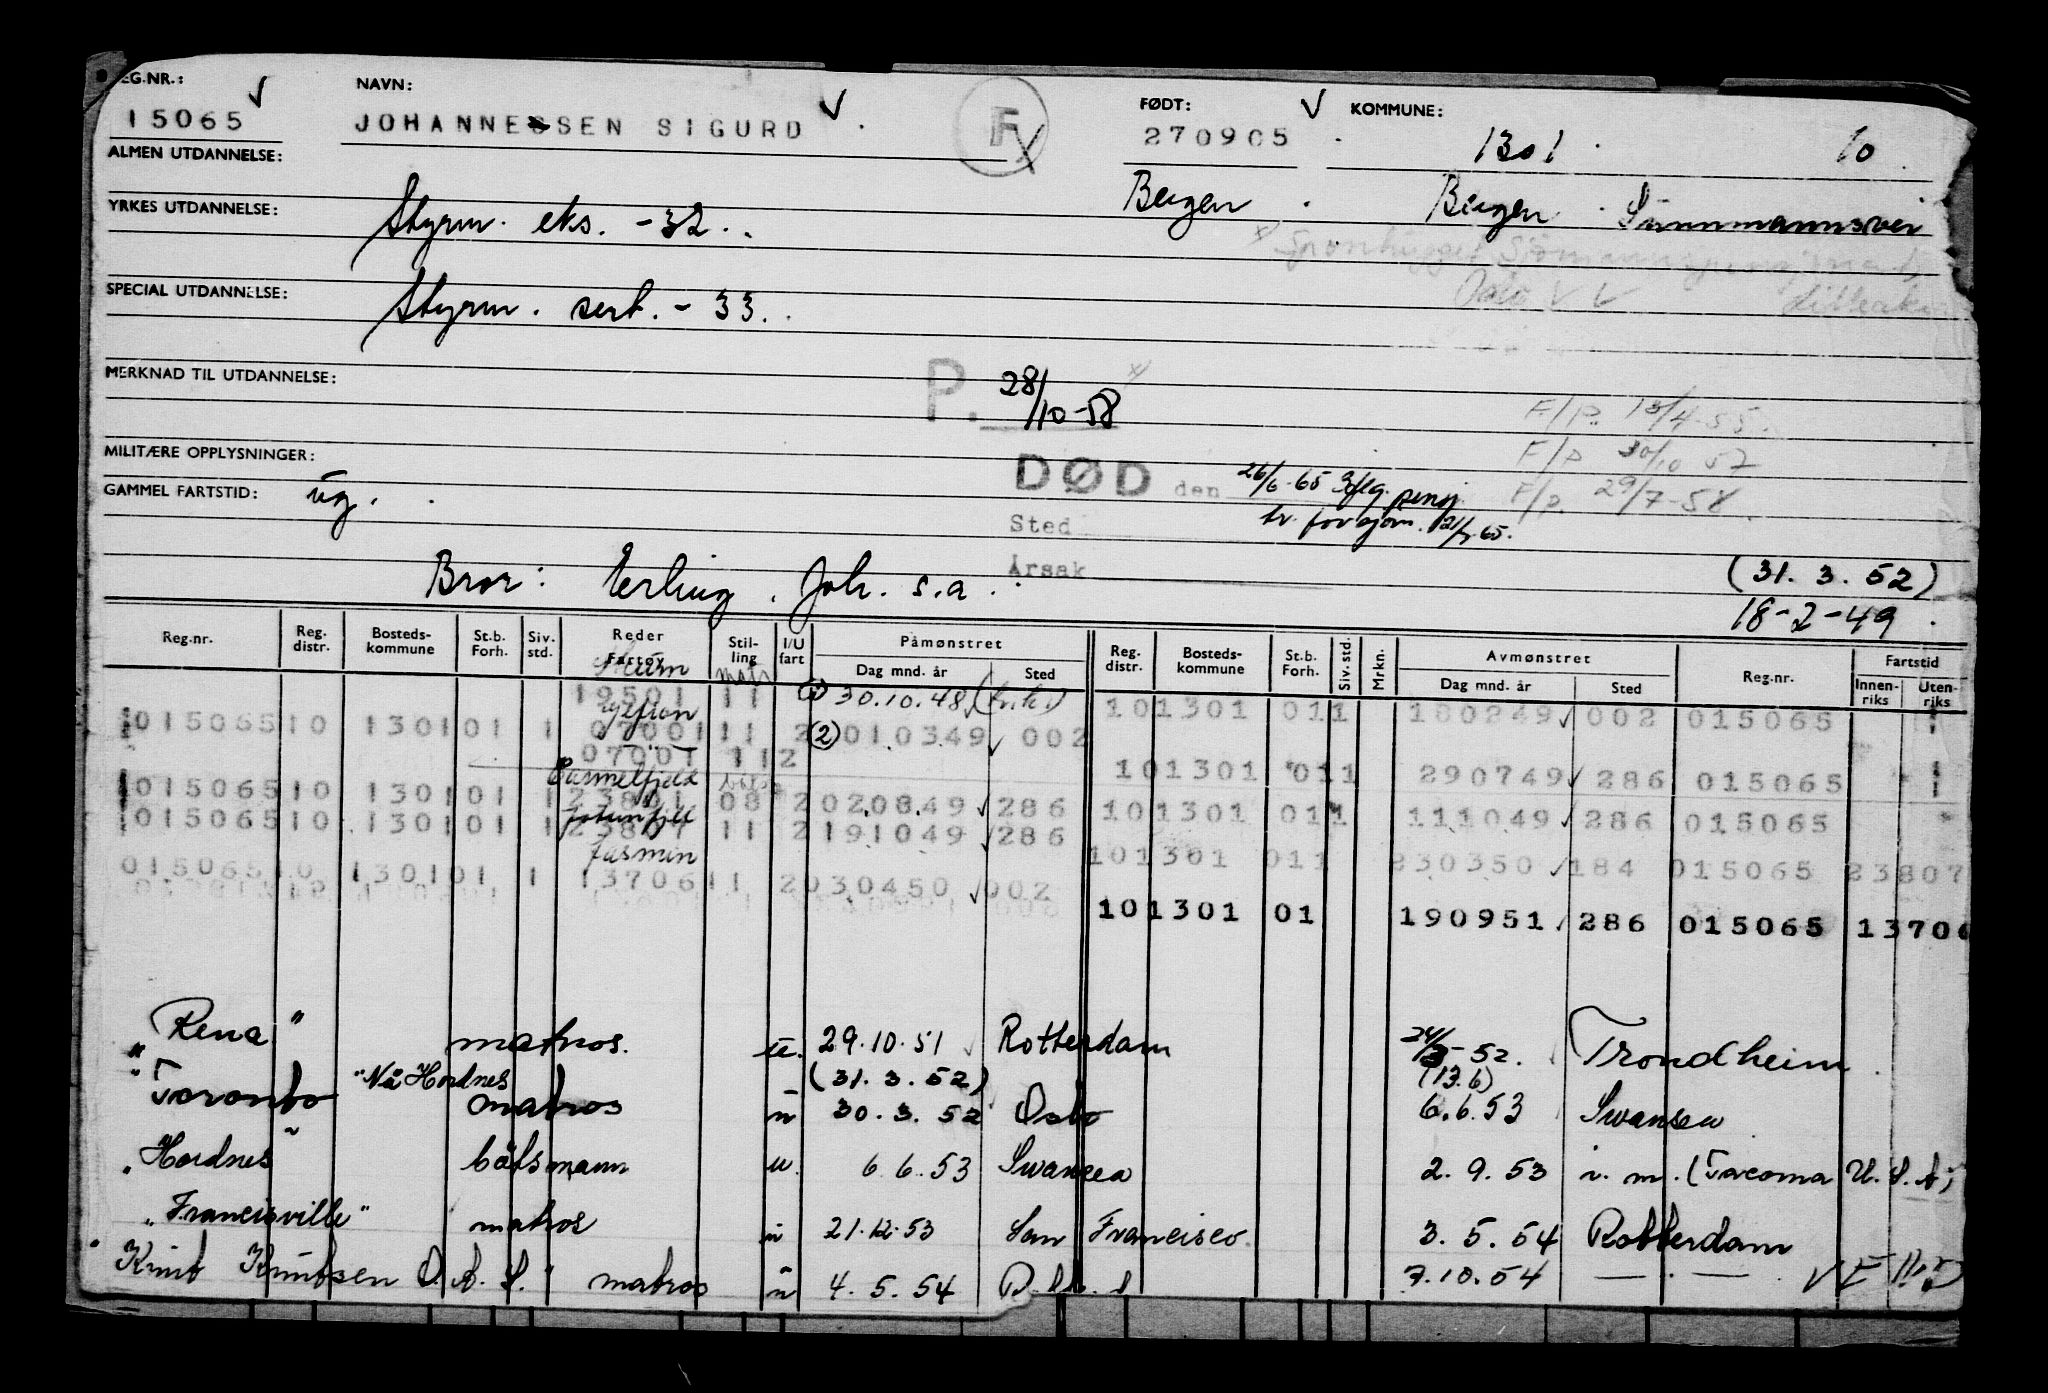 EG.NR.: NAVN: FØDT: KOMMUNE:
15065 JOHANNESSEN SIGURD F 270905 1301 10
ALMEN UTDANNELSE: Bergen Bergen
YRKES UTDANNELSE: Styrm. eks. -32.
Oslo
SPECIAL UTDANNELSE: Styrm. sert. - 33.
MERKNAD TIL UTDANNELSE: P. 28/10-58
F/p. 13/4-55.
F/p 30/10 57
F/p. 29/7-58
MILITÆRE OPPLYSNINGER:
DØD den 26/6-65 iflg. pensj.
GAMMEL FARTSTID: ug.
Sted tr. for sjøm.
Årsak
Bror: Erling Joh. s.a.
(31.3.52)
18-2-49
Reg.nr. Reg. distr. Bosteds-kommune St.b. Forh. Siv. std. Reder Fartøy Stil-ling I/U fart Påmønstret Dag mnd. år Sted Reg. distr. Bosteds-kommune St.b. Forh. Siv. std. Mrkn. Avmønstret Dag mnd. år Sted Reg.nr. Fartstid Innen-riks Uten-riks
19501 11 1) 30.10.48 101301 011 180249 002 015065
015065 10 1301 01 1 07001 11 2 (2) 010349 002
07001 112 101301 011 290749 286 015065
015065 10 1301 01 1 23801 08 2 020849 286 101301 011 111049 286 015065
Jotunfjell
015065 10 1301 01 1 23807 11 2 191049 286
Jasmin 101301 011 230350 184 015065 23807
015065 10 1301 01 1 13706 11 2 030450 002
101301 01 190951 286 015065 13706
"Rena" matros. u. 29.10.51 Rotterdam 24/3-52. Trondheim
"Toronto" "Nå Hordnes matros u (31.3.52) 30.3.52 Oslo (13.6) 6.6.53 Swansea
"Hordnes" båtsmann u. 6.6.53 Swansea 2.9.53 i.m. (Tacoma U.S.A)
"Francisville" matros u 21.12.53 San Francisco 3.5.54 Rotterdam
"Knut Knutsen O.A.S." matros u 4.5.54 7.10.54 — . — .